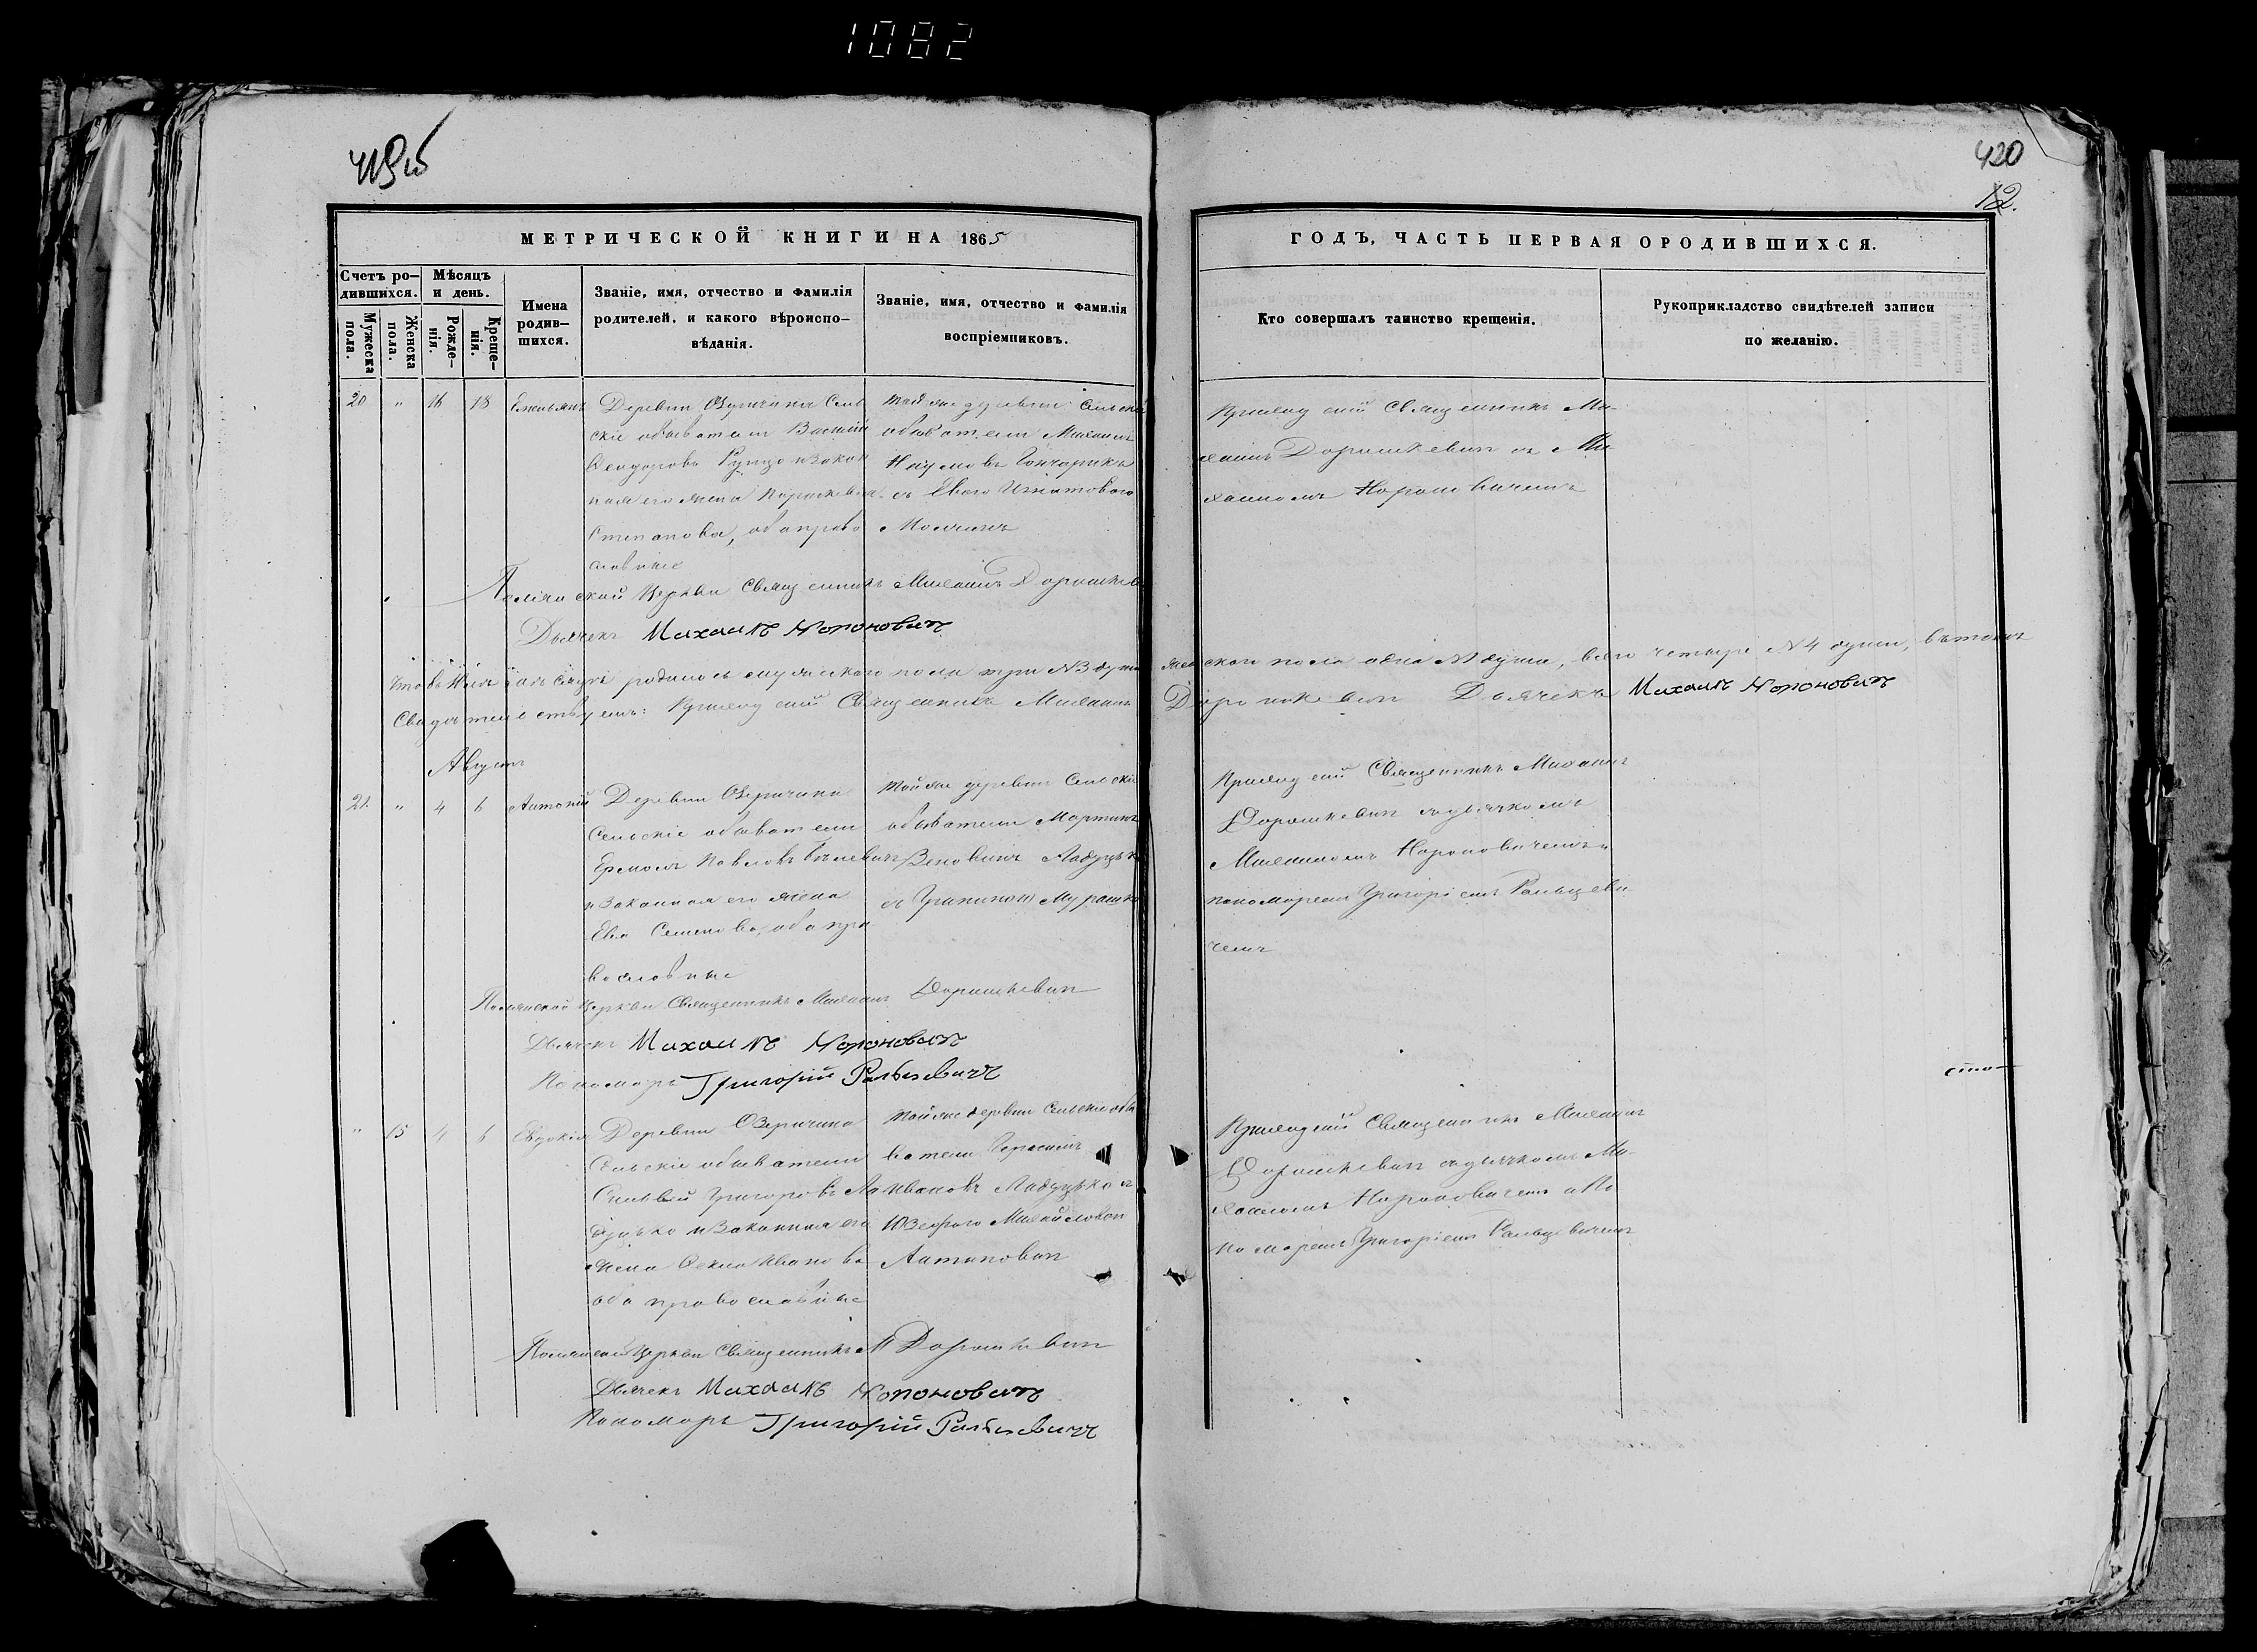 1082
419об
420
12.
МЕТРИЧЕСКОЙ КНИГИ НА 1865
ГОДЪ, ЧАСТЬ ПЕРВАЯ О РОДИВШИХСЯ.
Счетъ ро-
дившихся.
Мужеска
пола.
Женска
пола.
Мѣсяцъ
и день.
Рожде-
нія.
Креще-
нія.
Имена
родив-
шихся.
Званіе, имя, отчество и фамилія
родителей, и какого вѣроиспо-
вѣданія.
Званіе, имя, отчество и фамилія
воспріемниковъ.
Кто совершалъ таинство крещенія.
Рукоприкладство свидѣтелей записи
по желанію.
20 " 16 18 Емельянъ
Деревни Озеричина Сель
скіе обыватели Василій
Ѳеодоровъ и закон
ная его жена Параскева
Степанова, оба право
славные
той же деревни Сельскіе
обыватели Михаилъ
Наумовъ Гончарикъ
съ Евою Игнатовою
Приходскій Священникъ Ми-
хаилъ Дорошкевич съ Ми-
хаиломъ Нороновичемъ
церкви Священникъ Михаилъ Дорошкев
Дьячекъ Михаилъ Нороновичъ
родилось мужескаго пола три №3 души
женскаго пола одна №1 душа, всего четыре №4 души, въ томъ
Свидѣтельствуемъ: Приходскій Священникъ Михаилъ
Дорошкевич Дьячекъ Михаилъ Нороновичъ
Августъ
21. " 4 6 Антоній
Деревни Озеричина
Сельскіе обыватели
Ермолъ Павловъ
и законная его жена
Ева Семенова, оба пра
вославные
той же деревни Сельскіе
обыватели Мартинъ
Ладутьк
съ Мурашко
Приходскій Священникъ Михаилъ
Дорошкевич съ дьячкомъ
Михаиломъ Нороновичемъ и
пономаремъ Григоріемъ Ральцеви
чемъ
церкви Священникъ Михаилъ Дорошкевич
Дьячекъ Михаилъ Нороновичъ
Пономарь Григорій Ральцевичъ
" 15 4 6 Евдокія
Деревни Озеричина
Сельскіе обыватели
Григоровъ Ла
дутько и законная его
жена Ѳекла Иванова
оба православные
той же деревни Сельскіе обы
ватели Герасимъ
Ивановъ Ладутько с
Михайловой
Приходскій Священникъ Михаилъ
Дорошкевич съ дьячкомъ Ми-
хаиломъ Нороновичемъ и По
номаремъ Григоріемъ Ральцевичемъ
церкви Священникъ М Дорошкевич
Дьячекъ Михаилъ Нороновичъ
Пономарь Григорій Ральцевичъ